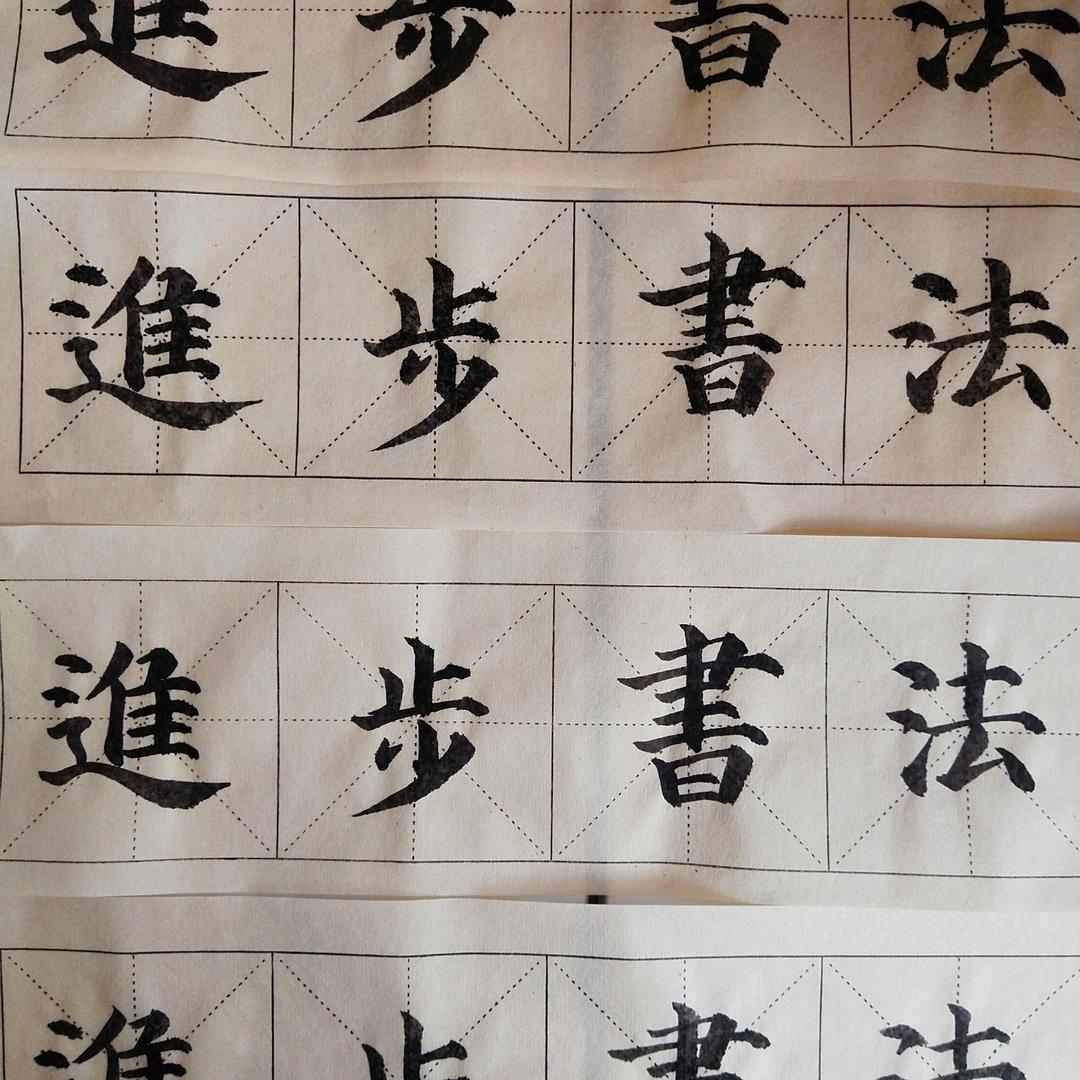 進步書法
進步書法
進步書法
進步書法